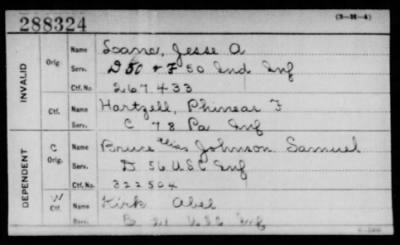 (3-H-A)
288324
INVALID
Orig.
Name Loane, Jesse A
Serv. D 50 + F 50 Ind Inf
Ctf. No. 267433
Ctf.
Name Hartzell, Phinear F
C 78 Pa Inf
DEPENDENT
C
Orig.
Name Bruce alias Johnson Samuel
Serv. D 56 USC Inf
Ctf. No. 322504
W
Ctf.
Name Kirk Abel
Serv. B 21 USC Inf